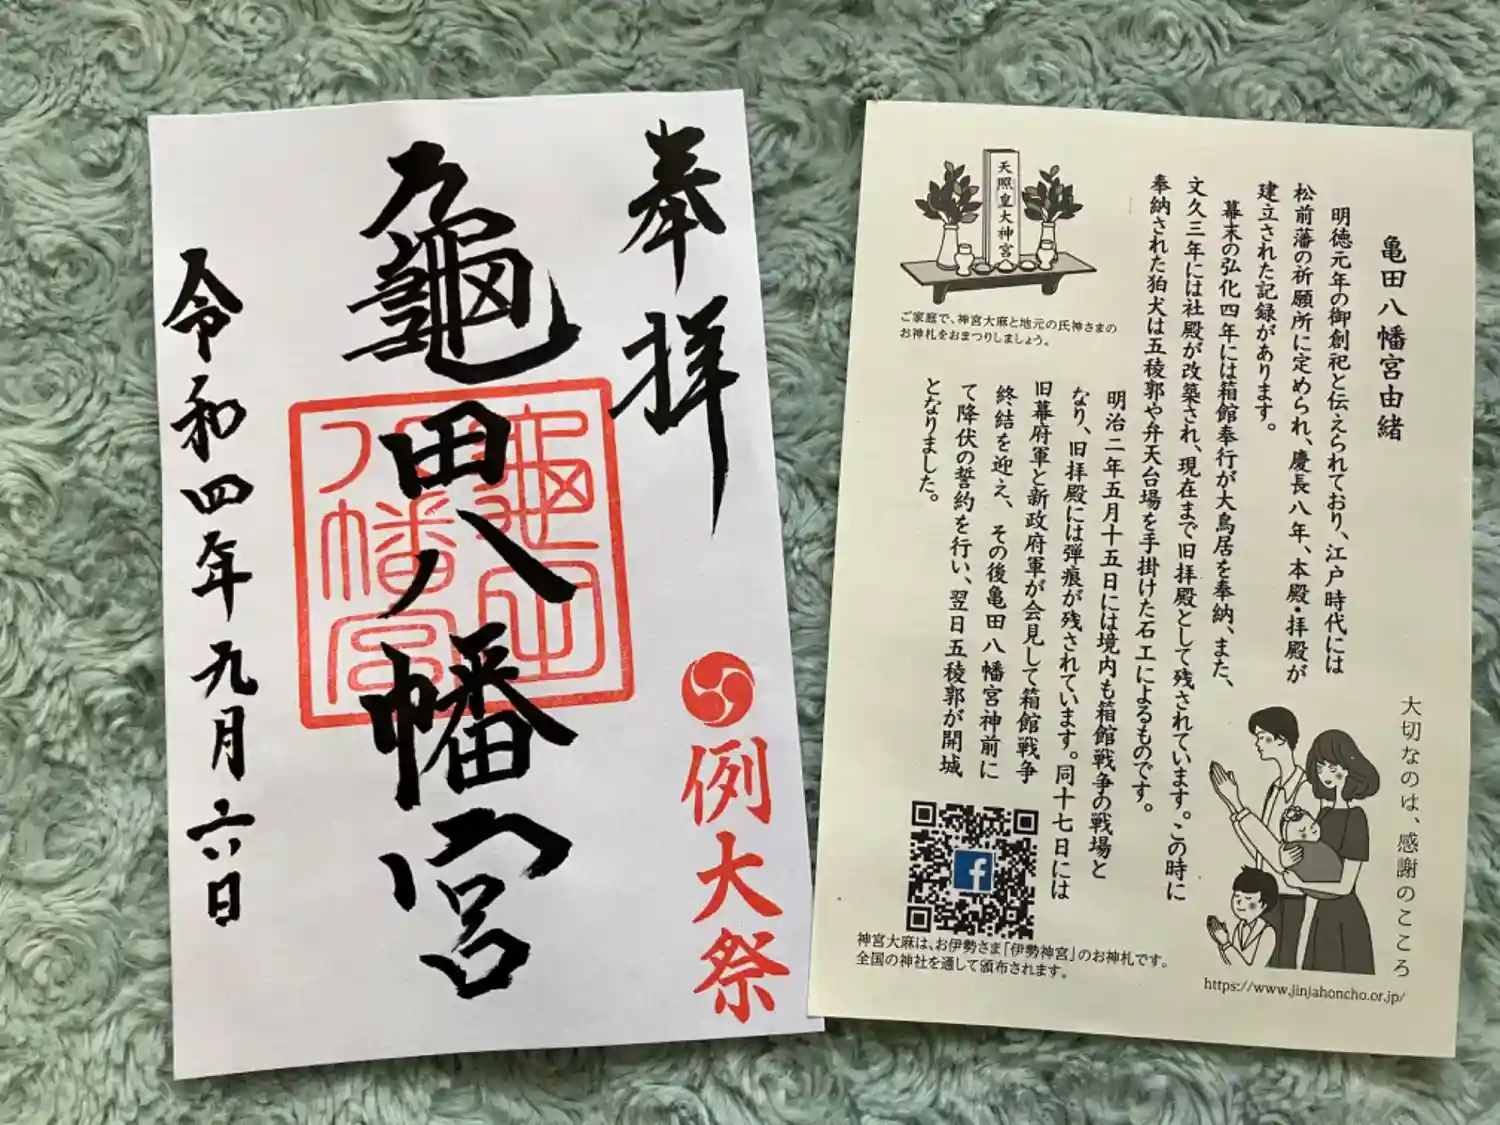 奉拝
龜田八幡宮
亀田
八幡宮
例大祭
令和四年九月六日
亀田八幡宮由緒
明徳元年の御創祀と伝えられており、江戸時代には
松前藩の祈願所に定められ、慶長八年、本殿・拝殿が
建立された記録があります。
幕末の弘化四年には箱館奉行が大鳥居を奉納、また、
文久三年には社殿が改築され、現在まで旧拝殿として残されています。この時に
奉納された狛犬は五稜郭や弁天台場を手掛けた石工によるものです。
明治二年五月十五日には境内も箱館戦争の戦場と
なり、旧拝殿には弾痕が残されています。同十七日には
旧幕府軍と新政府軍が会見して箱館戦争
終結を迎え、その後亀田八幡宮神前に
て降伏の誓約を行い、翌日五稜郭が開城
となりました。
天照皇大神宮
ご家庭で、神宮大麻と地元の氏神さまの
お神札をおまつりしましょう。
大切なのは、感謝のこころ
神宮大麻は、お伊勢さま「伊勢神宮」のお神札です。
全国の神社を通して頒布されます。
https://www.jinjahoncho.or.jp/